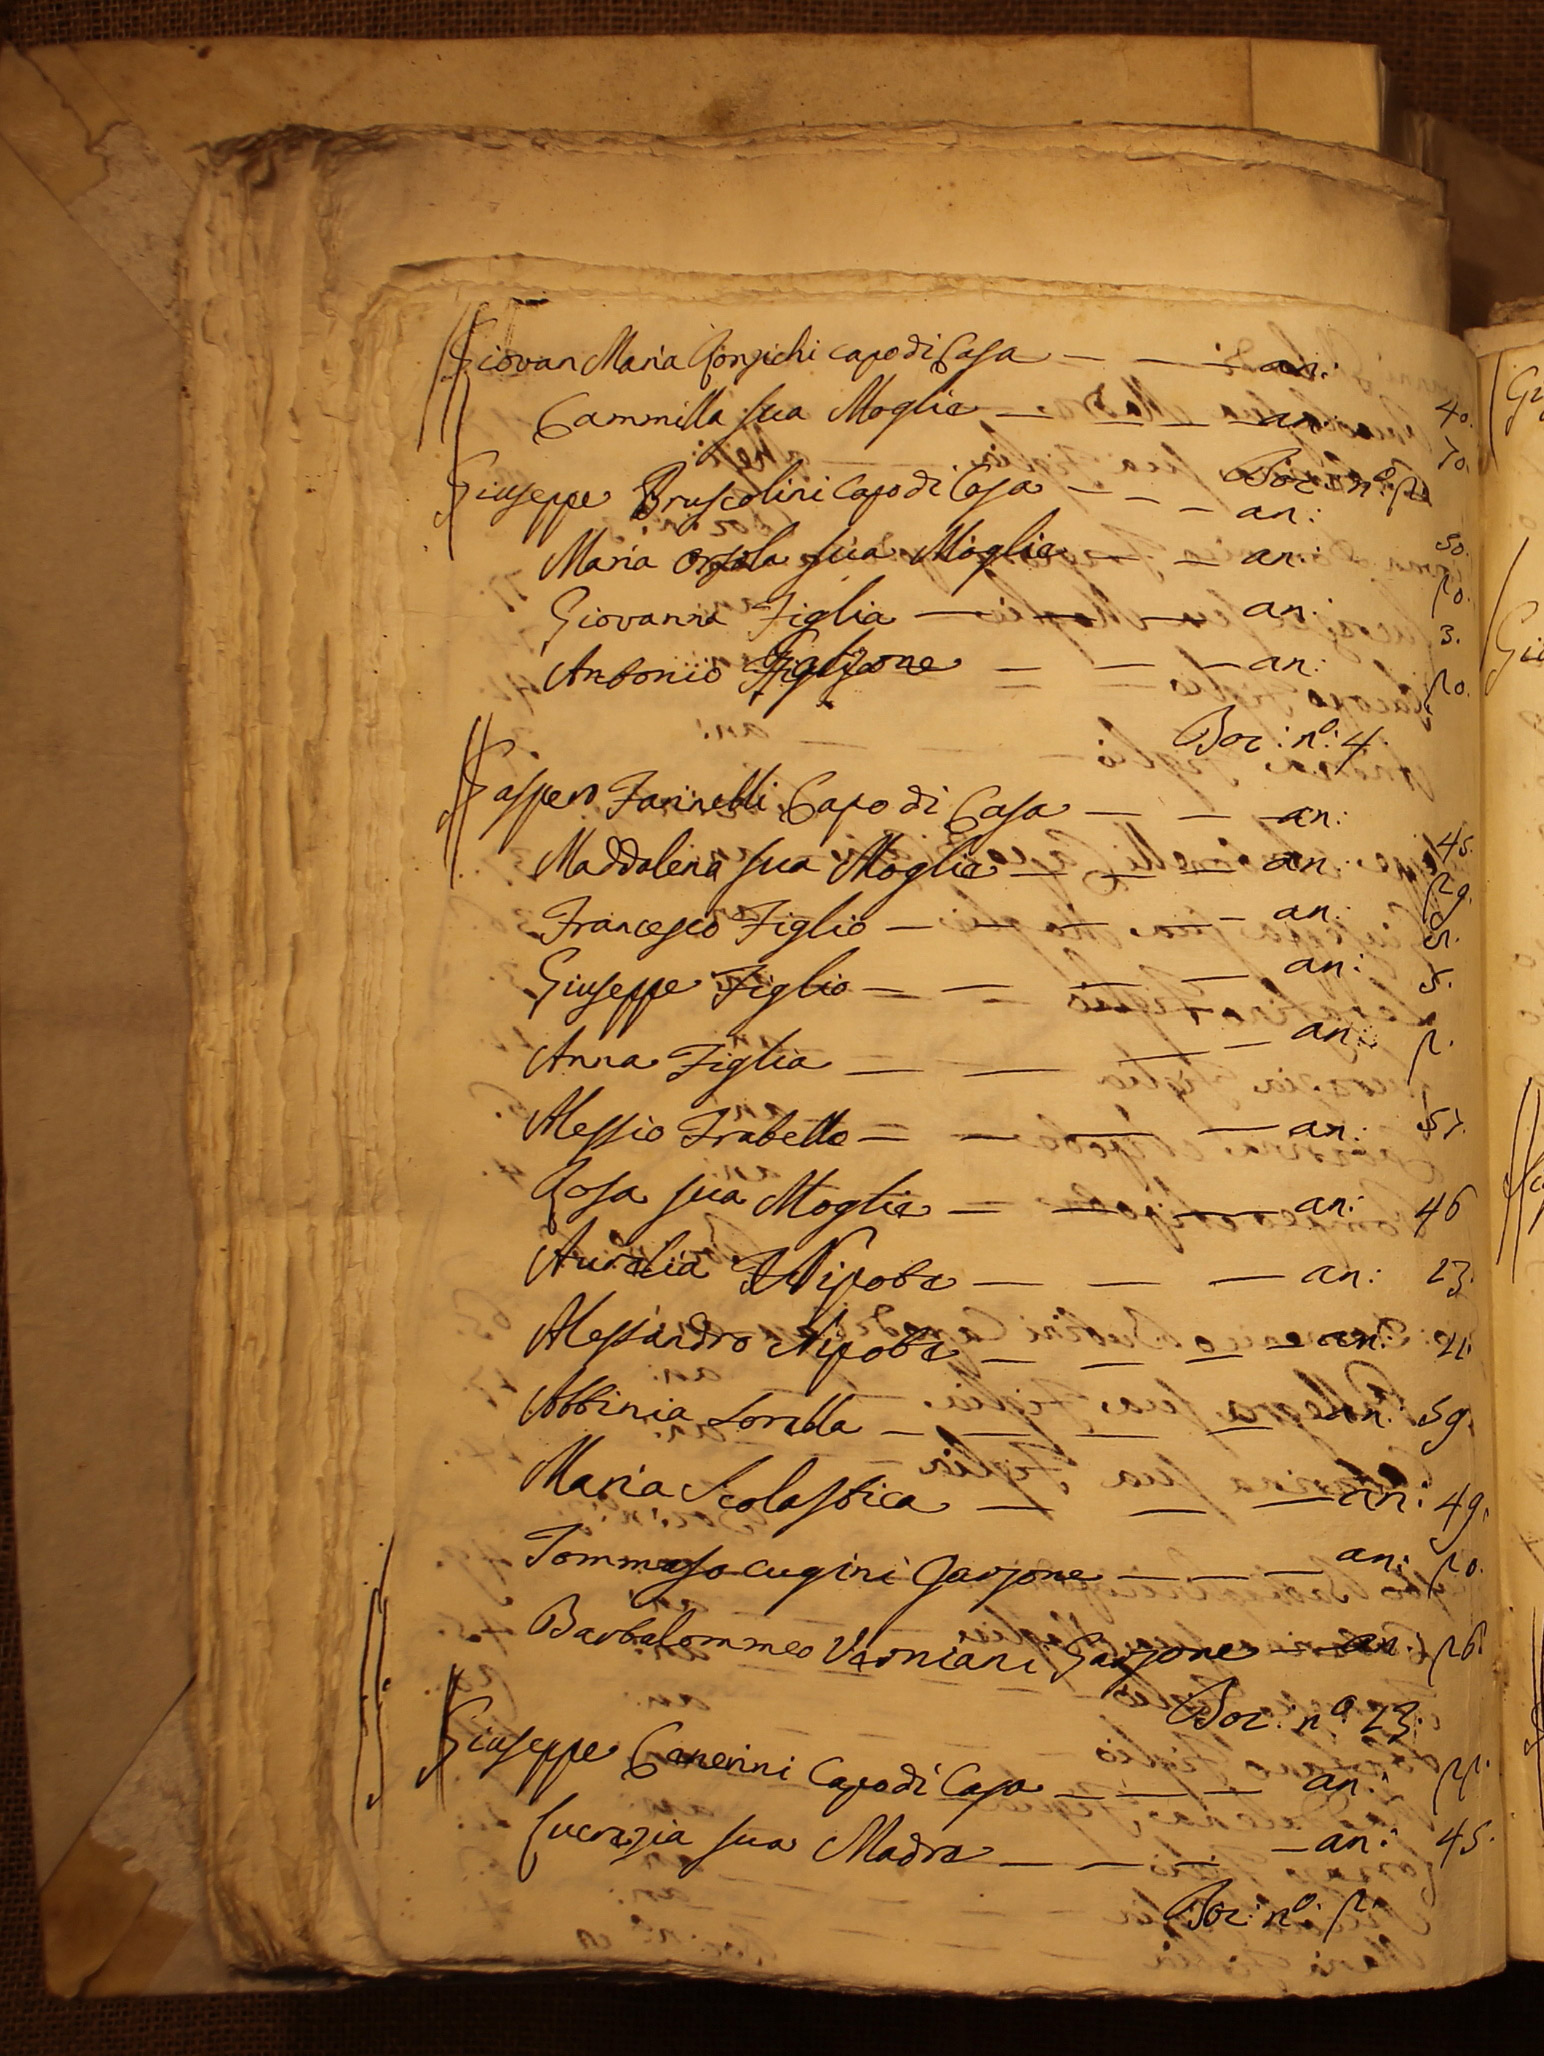 Giovan Maria Ronzichi capo di Casa — — — an: 40.
Cammilla sua Moglie — — — an: 30.
Boc: nº: 2
Giuseppe Bruscolini Capo di Casa — — — an: 50.
Maria Orsola sua Moglie — — an: 20.
Giovanna Figlia — — — an: 3.
Antonio Garzone — — — an: 20.
Boc: nº: 4
Gaspero Farinelli Capo di Casa — — — an: 45.
Maddalena sua Moglie — — — an: 29.
Francesco Figlio — — — — an:
Giuseppe Figlio — — — — an: 5.
Anna Figlia — — — — an: 2.
Alessio Fratello — — — — an: 51.
Rosa sua Moglie — — — an: 46
Aurelia Nipote — — — an: 23.
Alessandro Nipote — — — — an: 21.
Abbinia Sorella — — — — an: 59.
Maria Scolastica — — — an: 49.
Tommaso cugini Garzone — — — an: 20.
Bartolommeo Verniani Garzone — an: 26.
Boc: nº 23:
Giuseppe Canerini Capo di Casa — — — an: 22.
Lucrezia sua Madre — — — — an: 45.
Boc: nº: 2.